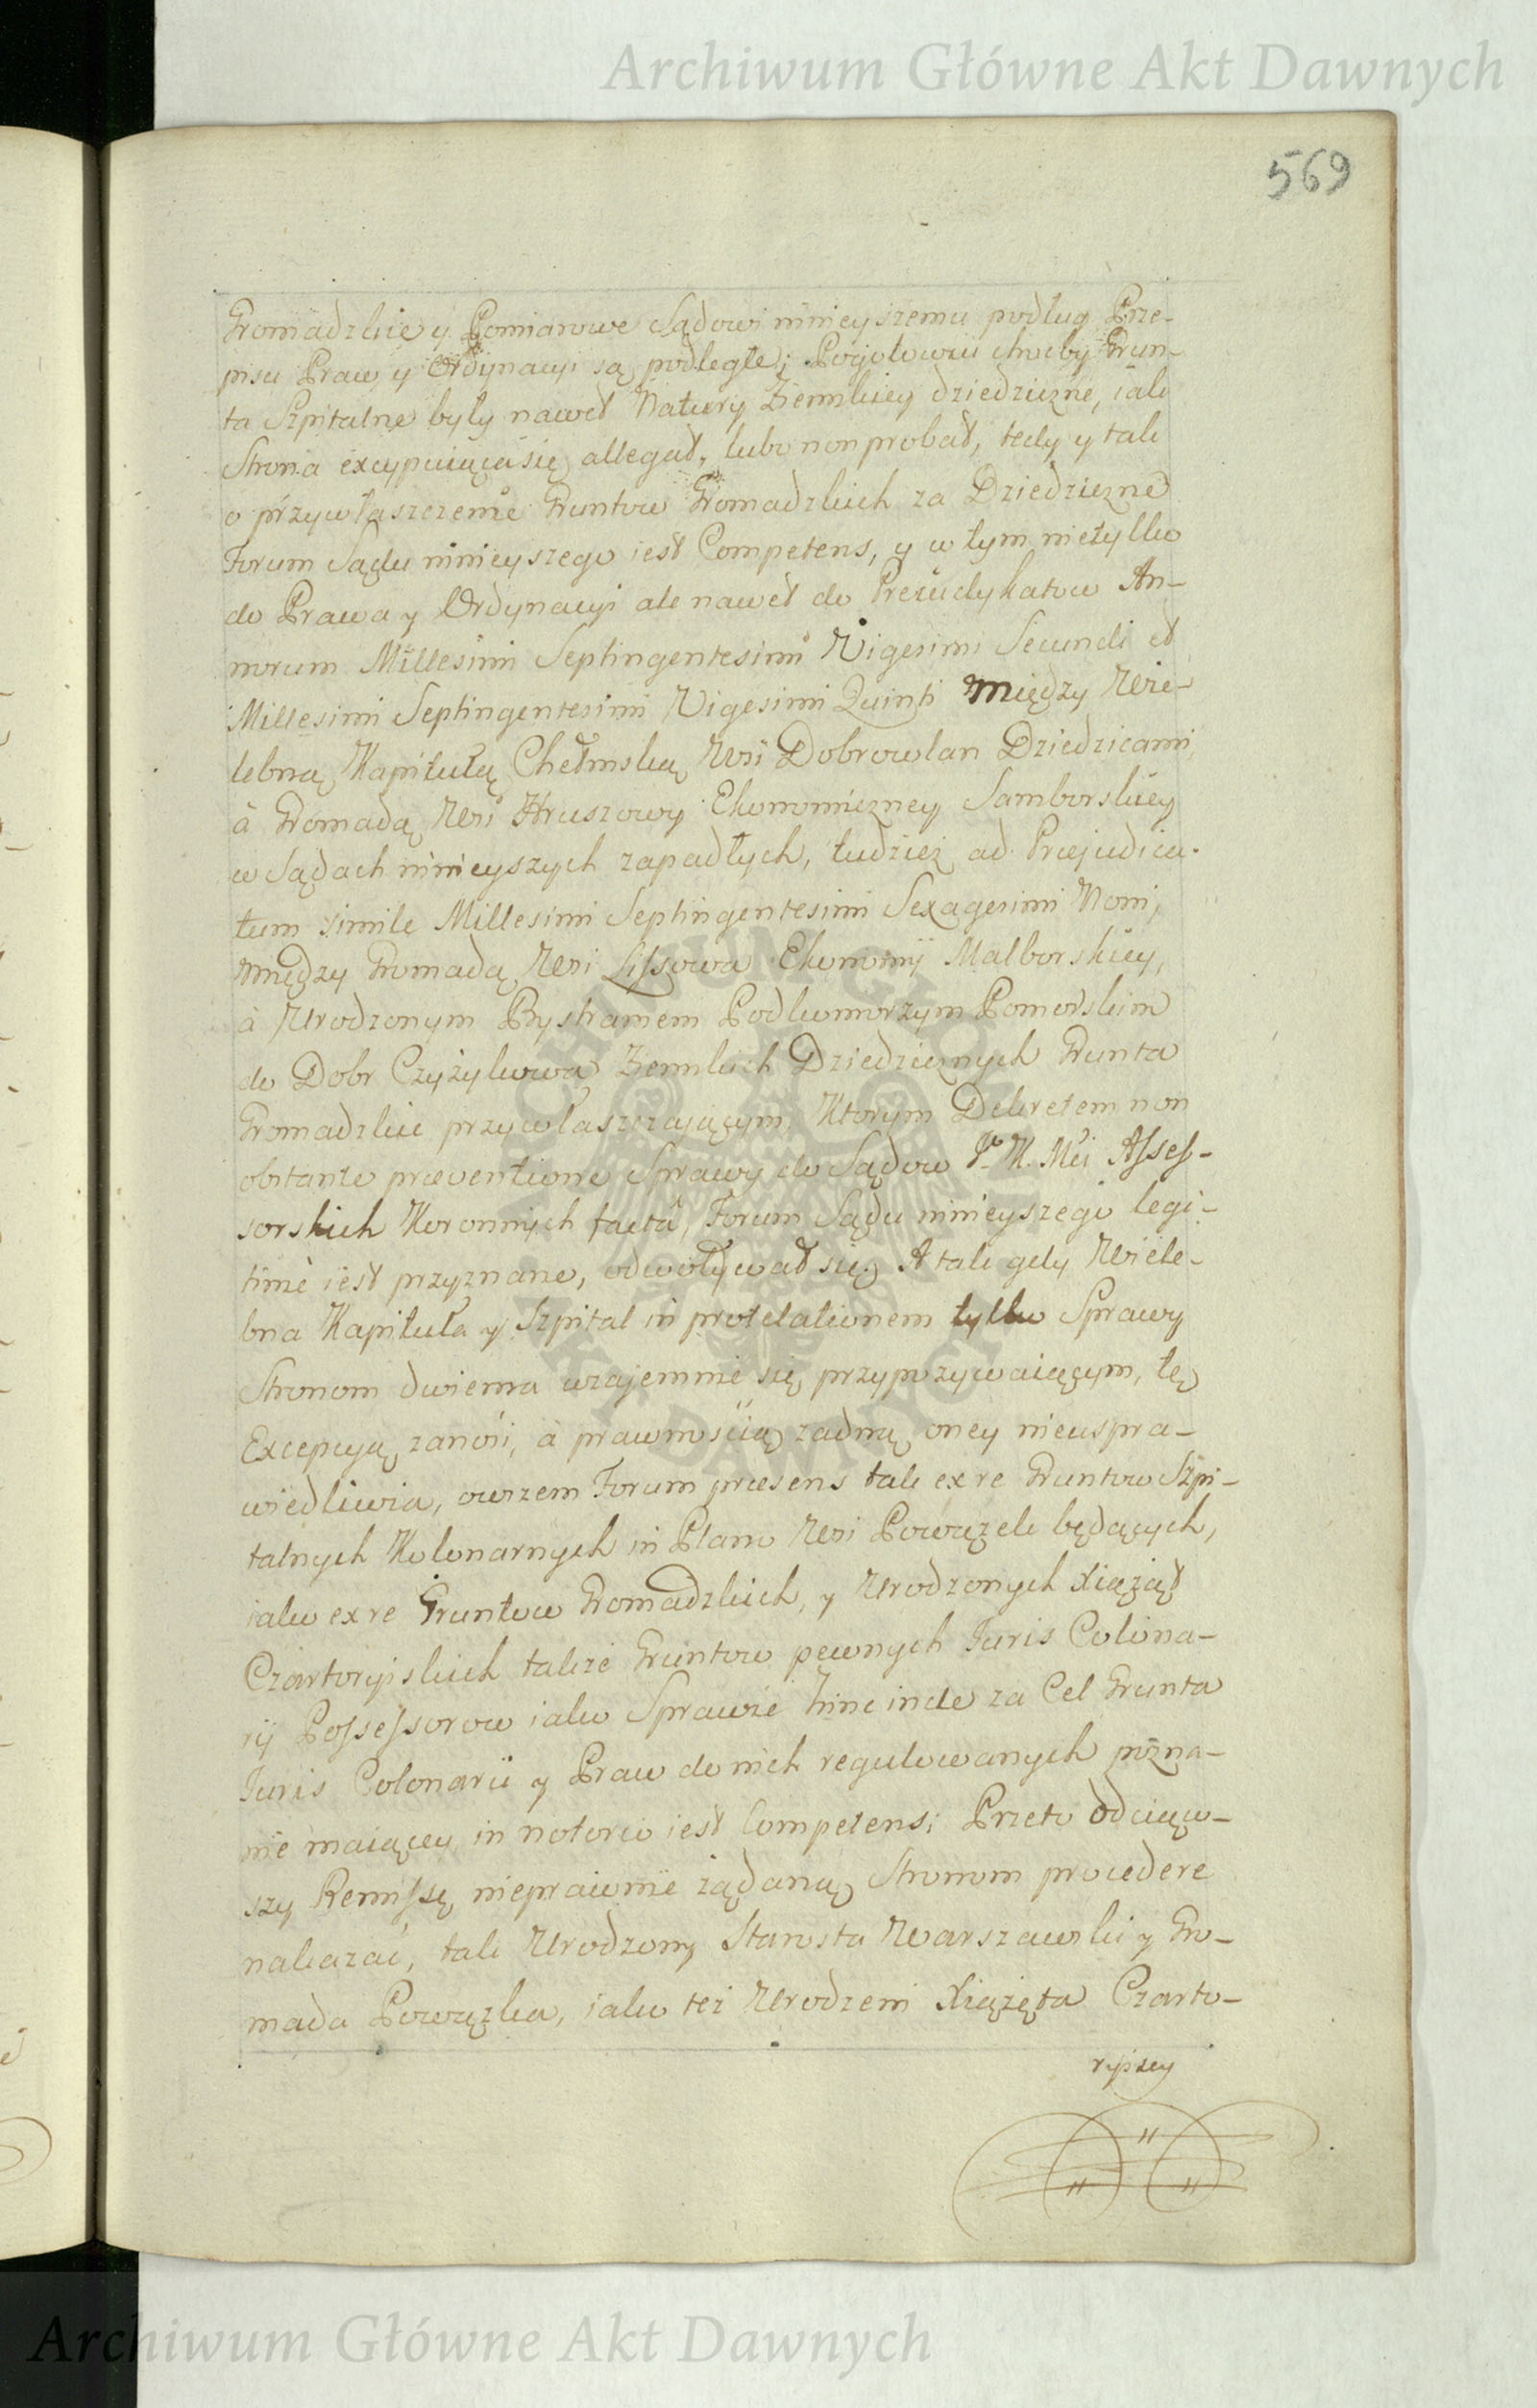 Archiwum Główne Akt Dawnych
569
Gromadzkie y Pomiarowe Sądowi ninieyszemu podług Prze-
pisu Praw y Ordynacyi są podległe; Poiotowszu choćby Grun-
ta Szpitalne były nawet Natury Ziemskiey dziedziczne, iak
Strona excypuiąca się allegat, lubo non probat, tedy y tak
o przywłaszczenie Gruntow Gromadzkich za Dziedziczne
Forum Sądu ninieyszego iest Competens, y w tym nietylko
do Prawa y Ordynacyi ale nawet do Preiudykatow An-
norum Millesimi Septingentesimi Vigesimi Secundi et
Millesimi Septingentesimi Vigesimi Quinti między Wie-
lebną Kapitułą Chełmską Wsi Dobrowlan Dziedzicami,
à Gromadą Wsi Hruszowy Ekonomiczney Samborskiey
w Sądach ninieyszych zapadłych, tudzież ad Præjudica-
tum simile Millesimi Septingentesimi Sexagesimi Noni,
między Gromadą Wsi Lissowa Ekonomij Malborskiey,
à Urodzonym Bystramem Podkomorzym Pomorskim
do Dobr Czyżykowa Ziemskich Dziedzicznych Grunta
Gromadzkie przywłaszczającym, Ktorym Dekretem non
obstante præventione Sprawy do Sądow J. K. Mći Asses-
sorskich Koronnych factâ, Forum Sądu ninieyszego legi-
time iest przyznane, odwoływał się. A tak gdy Wiele-
bna Kapituła y Szpital in protelationem tylko Sprawy
Stronom dwiema wzajemnie się przypozywaiącym, tę
Excepcyą zanosi, à prawnością żadną oney nieuspra-
wiedliwia, owszem Forum præsens tak ex re Gruntow Szpi-
talnych Kolonarnych in Plano Wsi Powązek będących,
iako ex re Gruntow Gromadzkich, y Urodzonych Xiążąt
Czartoryiskich także Gruntow pewnych Juris Colona-
rij Possessorow iako Sprawie hinc inde za Cel Grunta
Juris Colonarii y Praw do nich regulowanych pozna-
nie maiącey, in notorio iest Competens; Przeto odciąw-
szy Remissę nieprawnie żądaną Stronom procedere
nakazać, tak Urodzony Starosta Warszawski y Gro-
mada Powązka, iako też Urodzeni Xiążęta Czarto-
ryiscy
Archiwum Główne Akt Dawnych